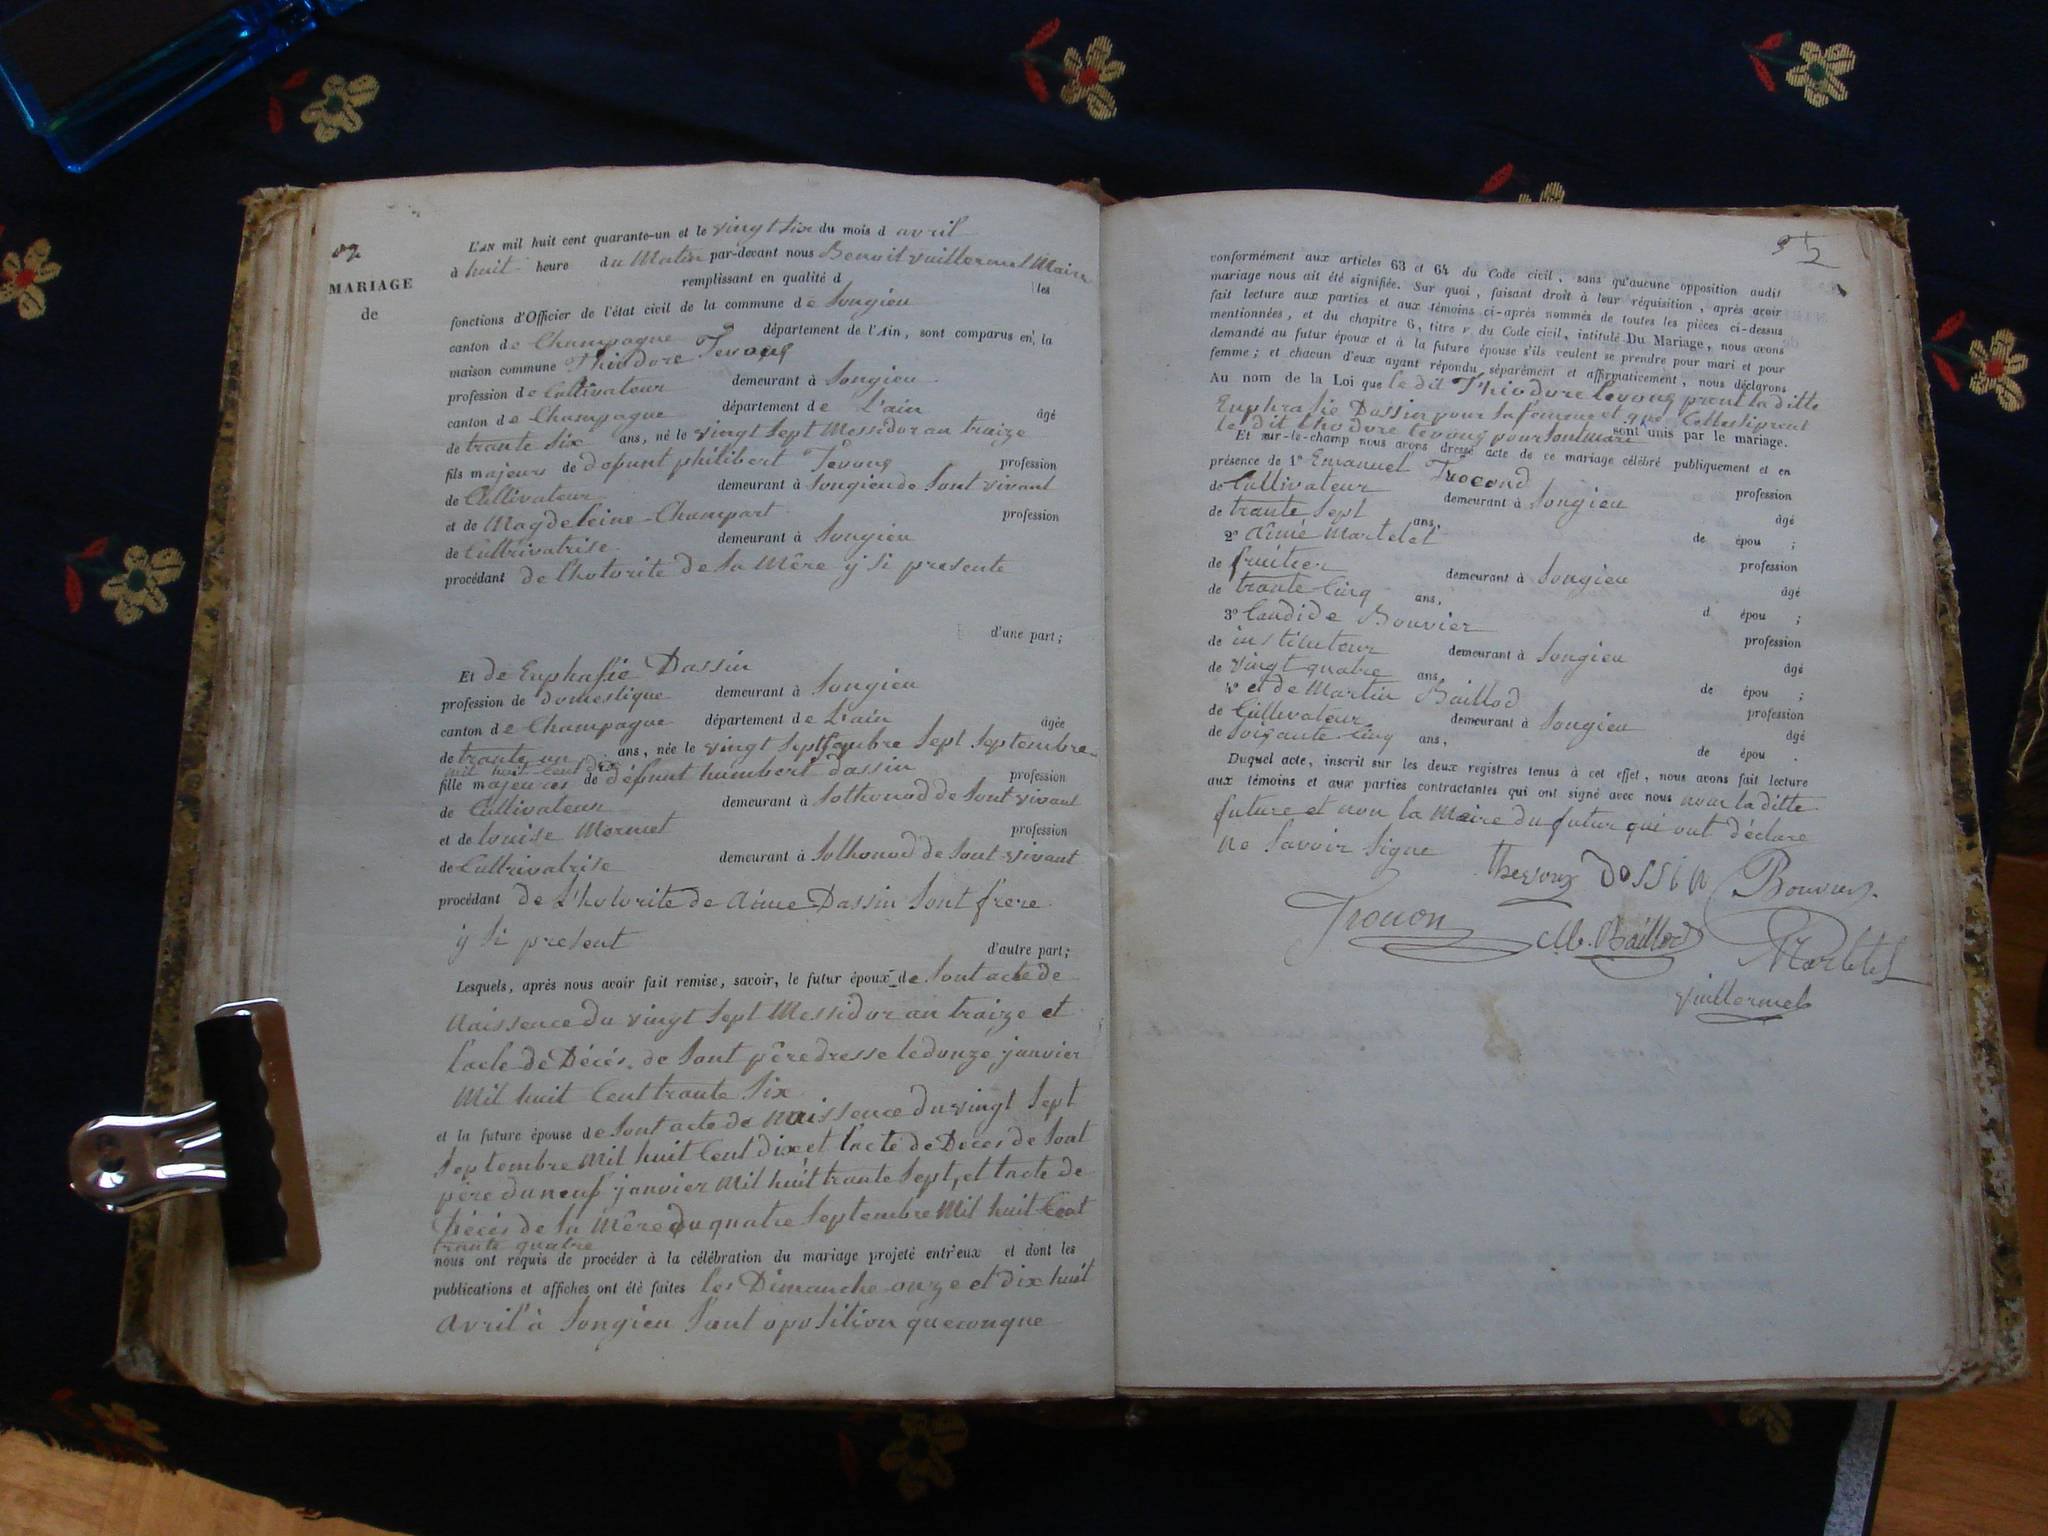 MARIAGE
de
L'AN mil huit cent quarante-un et le vingt six du mois d avril
à huit heure du Matin par-devant nous Benoit vuillermet Maire
remplissant en qualité d les
fonctions d'Officier de l'état civil de la commune de Songieu
canton de Champagne département de l'Ain, sont comparus en la
maison commune Théodore Tevong
profession de Cultivateur demeurant à Songieu
canton de Champagne département de L'ain âgé
de trante Six ans, né le vingt Sept Messidor an traize
fils majeur de defunt philibert Tevong profession
de Cultivateur demeurant à Songieu de Sont vivant
et de Magdeleine Champart profession
de Cultrivatrise demeurant à Songieu
procédant de l'hotorite de Sa Mêre y Si presente
d'une part;
Et de Euphasie Dassin
profession de domestique demeurant à Songieu
canton de Champagne département de L'ain âgée
de trante un ans, née le vingt Sept Septembre
mil huit Cent dix
fille majeures de défunt humbert dassin profession
de Cultivateur demeurant à Sothonod de Sont vivant
et de louise Mermet profession
de Cultrivatrise demeurant à Sothonod de Sont vivant
procédant de L'hotorite de Aime Dassin Sont frere
y Si present d'autre part;
Lesquels, après nous avoir fait remise, savoir, le futur époux de Sont acte de
Naissence du vingt Sept Messidor an traize et
l'acte de Décés de Sont pêre dresse le douze janvier
Mil huit Cent trante Six
et la future épouse de Sont acte de Naissence du vingt Sept
Septembre Mil huit Cent Dix et l'acte de Deces de Sont
père du neuf janvier Mil huit trante Sept, et l'acte de
Décés de Sa Mêre du quatre Septembre Mil huit Cent
trante quatre
nous ont requis de procéder à la célébration du mariage projeté entr'eux et dont les
publications et affiches ont été faites les Dimanche onze et dix huit
avril à Songieu Sant oposition queconque
52
conformément aux articles 63 et 64 du Code civil, sans qu'aucune opposition audit
mariage nous ait été signifiée. Sur quoi, faisant droit à leur réquisition, après avoir
fait lecture aux parties et aux témoins ci-après nommés de toutes les pièces ci-dessus
mentionnées, et du chapitre 6, titre v du Code civil, intitulé Du Mariage, nous avons
demandé au futur époux et à la future épouse s'ils veulent se prendre pour mari et pour
femme; et chacun d'eux ayant répondu séparément et affirmativement, nous déclarons
Au nom de la Loi que le dit Théodore tevong prent la ditte
Euphrasie Dassin pour Sa fémme et que Celle si prent
le dit thodore tevong pour Sont mari sont unis par le mariage.
Et sur-le-champ nous avons dressé acte de ce mariage célébré publiquement et en
présence de 1° Emanuel Trocond profession
de Cultivateur demeurant à Songieu âgé
de trante Sept ans, de épou ;
2° Aimé Martelet profession
de fruitier demeurant à Songieu âgé
de trante Cinq ans, d épou ;
3° Candide Bouvier profession
de instituteur demeurant à Songieu âgé
de vingt quatre ans, de épou ;
4° et de Martin Baillod profession
de Cultivateur demeurant à Songieu âgé
de Soixante Cinq ans, de épou .
Duquel acte, inscrit sur les deux registres tenus à cet effet, nous avons fait lecture
aux témoins et aux parties contractantes qui ont signé avec nous non la ditte
future et non la Meire du futur qui ont déclare
ne Savoir Signe
DOSSIN Bouvier
Trocon M. Baillod Martelet
vuillermet